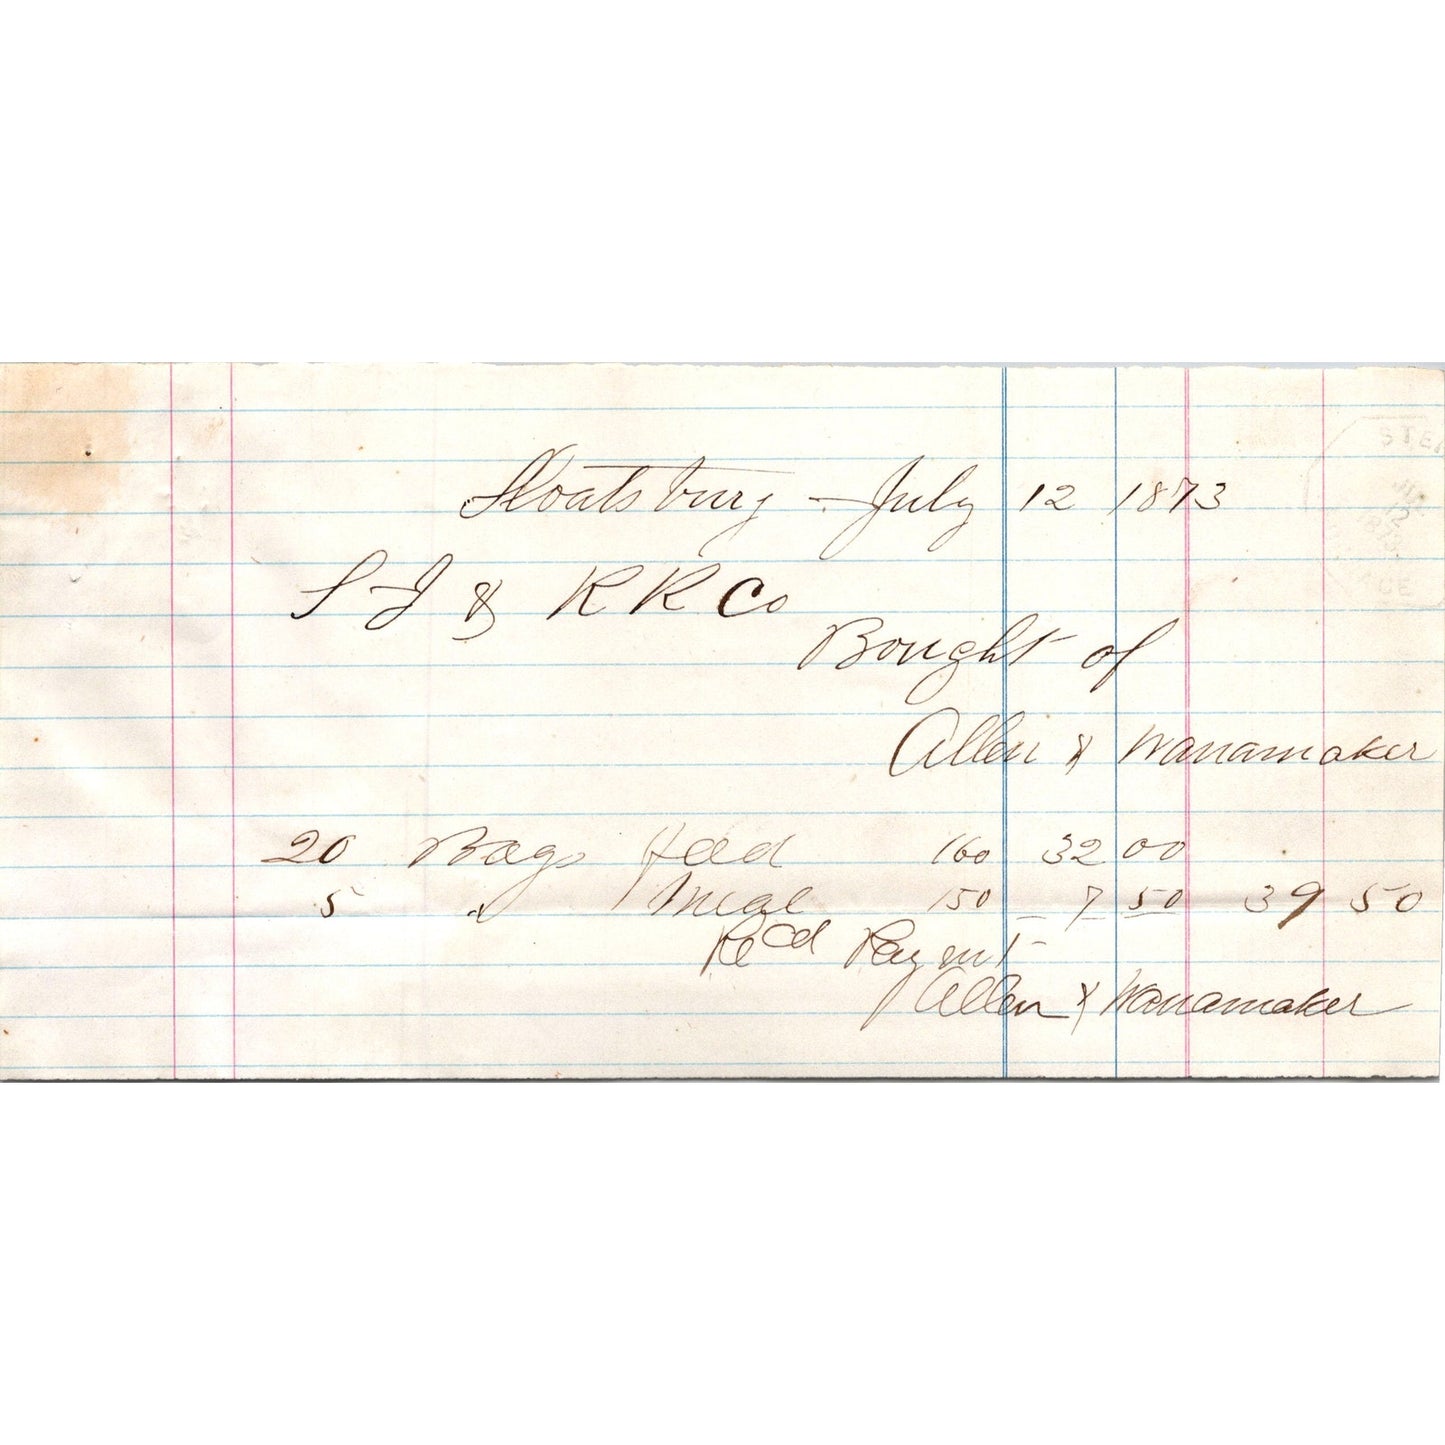 Sloatsburg - July 12 1873
S I & R R Co
Bought of
Allen & Wanamaker
20 Bags Feed 160 32 00
5 " Meal 150 7 50 39 50
Recd Payment
Allen & Wanamaker